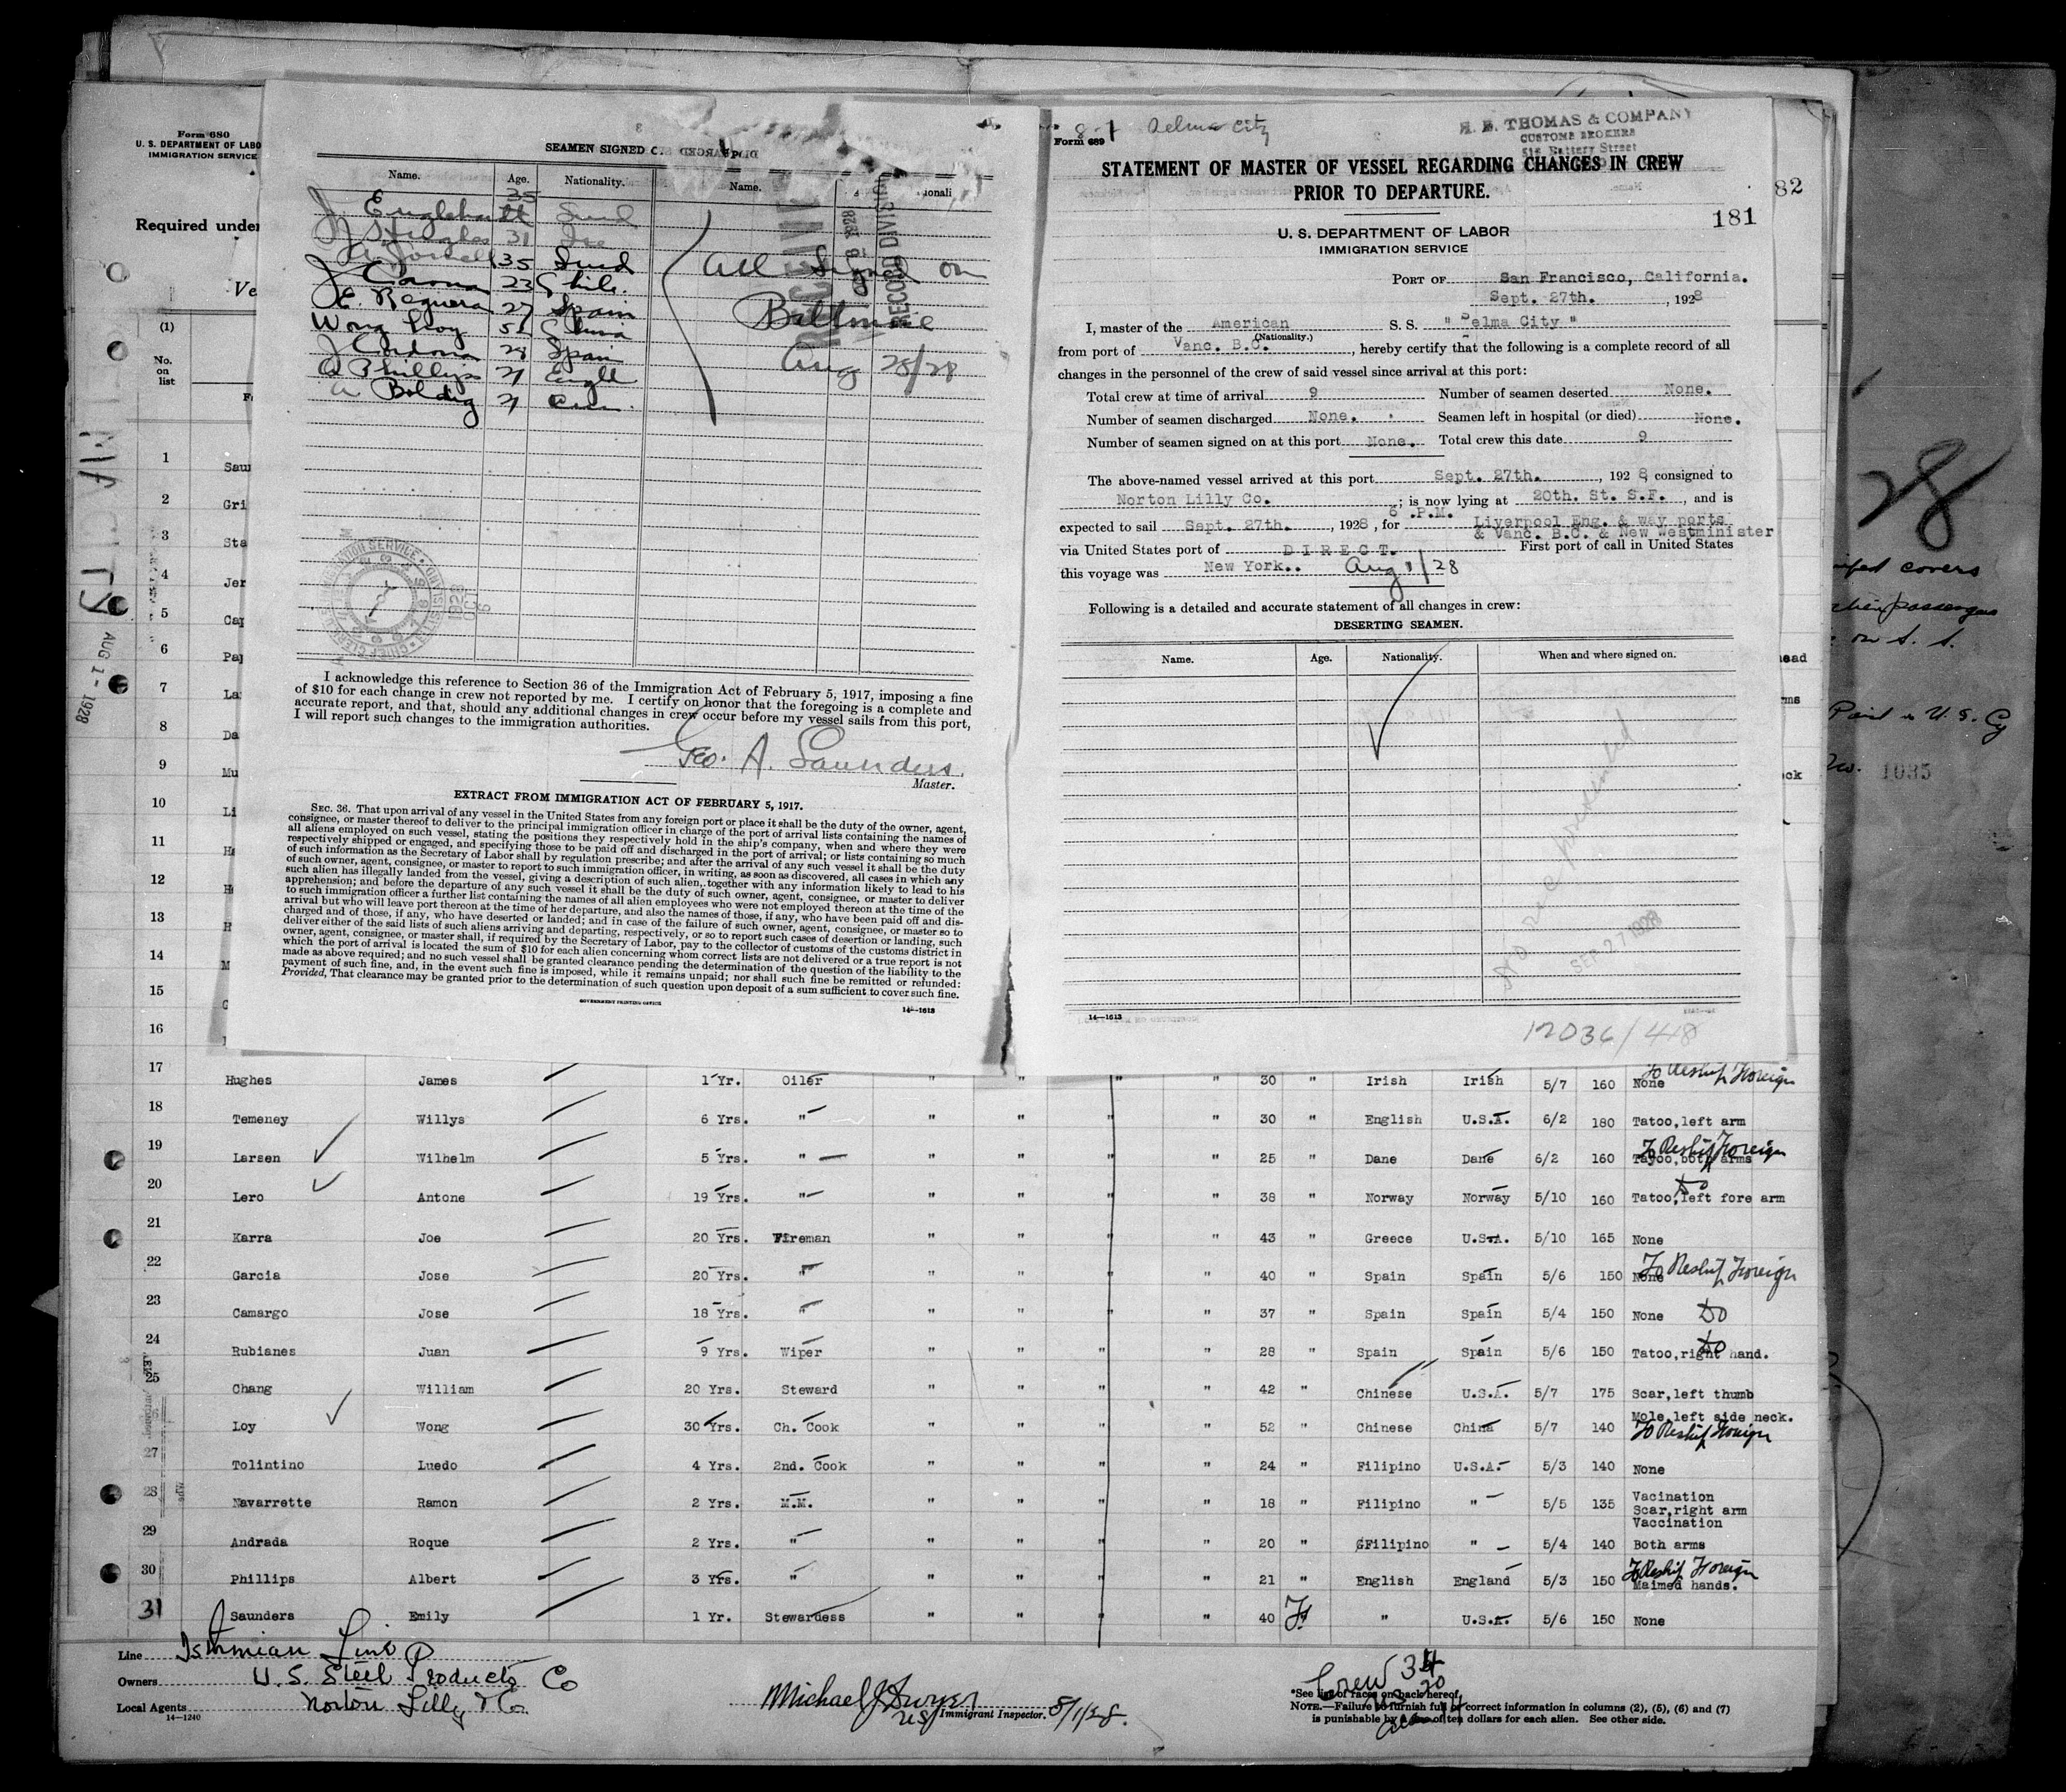 Form 680
U. S. DEPARTMENT OF LABO
IMMIGRATION SERVICE
Required under
Ve
(1)
No.
on
list
F
1 Sau
2 Gri
3 Sta
4 Jer
5 Cap
6 Pa
7 La
8 Da
9 Mu
10 Li
11 H
12 H
13 H
14 M
15
16
AUG 1 - 1928
SEAMEN SIGNED
Name. Age. Nationality. Name. ionali
J Englehardt 35 Swed
J Hughes 31 Ire
35 Swed
J Corona 23 Chile.
E. Reguera 27 Spain
Wong Loy 52 China
J Cardona 28 Spain
A Phillips 21 Engld
A Boldig 21
All Signed on
Baltimore
Aug 28/28
RECORD DIVISION
1928
OCT
6
I acknowledge this reference to Section 36 of the Immigration Act of February 5, 1917, imposing a fine
of $10 for each change in crew not reported by me. I certify on honor that the foregoing is a complete and
accurate report, and that, should any additional changes in crew occur before my vessel sails from this port,
I will report such changes to the immigration authorities.
Geo. A. Saunders.
Master.
EXTRACT FROM IMMIGRATION ACT OF FEBRUARY 5, 1917.
SEC. 36. That upon arrival of any vessel in the United States from any foreign port or place it shall be the duty of the owner, agent,
consignee, or master thereof to deliver to the principal immigration officer in charge of the port of arrival lists containing the names of
all aliens employed on such vessel, stating the positions they respectively hold in the ship's company, when and where they were
respectively shipped or engaged, and specifying those to be paid off and discharged in the port of arrival; or lists containing so much
of such information as the Secretary of Labor shall by regulation prescribe; and after the arrival of any such vessel it shall be the duty
of such owner, agent, consignee, or master to report to such immigration officer, in writing, as soon as discovered, all cases in which any
such alien has illegally landed from the vessel, giving a description of such alien, together with any information likely to lead to his
apprehension; and before the departure of any such vessel it shall be the duty of such owner, agent, consignee, or master to deliver
to such immigration officer a further list containing the names of all alien employees who were not employed thereon at the time of the
arrival but who will leave port thereon at the time of her departure, and also the names of those, if any, who have been paid off and dis-
charged and of those, if any, who have deserted or landed; and in case of the failure of such owner, agent, consignee, or master so to
deliver either of the said lists of such aliens arriving and departing, respectively, or so to report such cases of desertion or landing, such
owner, agent, consignee, or master shall, if required by the Secretary of Labor, pay to the collector of customs of the customs district in
which the port of arrival is located the sum of $10 for each alien concerning whom correct lists are not delivered or a true report is not
made as above required; and no such vessel shall be granted clearance pending the determination of the question of the liability to the
payment of such fine, and, in the event such fine is imposed, while it remains unpaid; nor shall such fine be remitted or refunded:
Provided, That clearance may be granted prior to the determination of such question upon deposit of a sum sufficient to cover such fine.
GOVERNMENT PRINTING OFFICE
14—1613
8-1 Selma City
Form 689
H. E. THOMAS & COMPANY
CUSTOMS BROKERS
516 Battery Street
STATEMENT OF MASTER OF VESSEL REGARDING CHANGES IN CREW
PRIOR TO DEPARTURE.
82
181
U. S. DEPARTMENT OF LABOR
IMMIGRATION SERVICE
PORT OF San Francisco, California.
Sept. 27th. , 1928
I, master of the American S. S. " Selma City "
(Nationality.)
from port of Vanc. B.C. , hereby certify that the following is a complete record of all
changes in the personnel of the crew of said vessel since arrival at this port:
Total crew at time of arrival 9 Number of seamen deserted None.
Number of seamen discharged None. Seamen left in hospital (or died) None.
Number of seamen signed on at this port None. Total crew this date 9
The above-named vessel arrived at this port Sept. 27th. , 1928, consigned to
Norton Lilly Co. ; is now lying at 20th. St. S.F. , and is
6 .P.M.
expected to sail Sept. 27th. , 1928 , for Liverpool Eng. & way ports
& Vanc. B.C. & New Westminister
via United States port of D I R E C T. First port of call in United States
this voyage was New York.. Aug 1/28
Following is a detailed and accurate statement of all changes in crew:
DESERTING SEAMEN.
Name. Age. Nationality. When and where signed on.
No rec presented
SEP 27 1928
14—1613
12036/418
28
covers
passengers
on S. S.
Paid in U. S. Cy
No. 1035
17 Hughes James 1 Yr. Oiler " " " " 30 " Irish Irish 5/7 160 None To Reship Foreign
18 Temeney Willys 6 Yrs. " " " " " 30 " English U.S.A. 6/2 180 Tatoo,left arm
19 Larsen Wilhelm 5 Yrs. " " " " " 25 " Dane Dane 6/2 160 Tatoo,both arms To Reship Foreign
20 Lero Antone 19 Yrs. " " " " " 38 " Norway Norway 5/10 160 Tatoo,left fore arm Do
21 Karra Joe 20 Yrs. Fireman " " " " 43 " Greece U.S.A. 5/10 165 None
22 Garcia Jose 20 Yrs. " " " " " 40 " Spain Spain 5/6 150 None To Reship Foreign
23 Camargo Jose 18 Yrs. " " " " " 37 " Spain Spain 5/4 150 None Do
24 Rubianes Juan 9 Yrs. Wiper " " " " 28 " Spain Spain 5/6 150 Tatoo,right hand. Do
25 Chang William 20 Yrs. Steward " " " " 42 " Chinese U.S.A. 5/7 175 Scar,left thumb
Loy Wong 30 Yrs. Ch. Cook " " " " 52 " Chinese China 5/7 140 Mole,left side neck. To Reship Foreign
27 Tolintino Luedo 4 Yrs. 2nd. Cook " " " " 24 " Filipino U.S.A. 5/3 140 None
28 Navarrette Ramon 2 Yrs. M.M. " " " " 18 " Filipino " 5/5 135 Vacination
Scar,right arm
29 Andrada Roque 2 Yrs. " " " " " 20 " Filipino " 5/4 140 Vaccination
Both arms
30 Phillips Albert 3 Yrs. " " " " " 21 " English England 5/3 150 Maimed hands. To Reship Foreign
31 Saunders Emily 1 Yr. Stewardess " " " " 40 F " U.S.A. 5/6 150 None
Line Isthmian Line
Owners U. S. Steel Products Co
Local Agents Norton Lilly & Co.
14—1240
Michael J Dwyer
US Immigrant Inspector. 8/1/28.
Crew 34
US 20
*See list of races on back hereof.
NOTE.—Failure to furnish full or correct information in columns (2), (5), (6) and (7)
is punishable by fine of ten dollars for each alien. See other side.